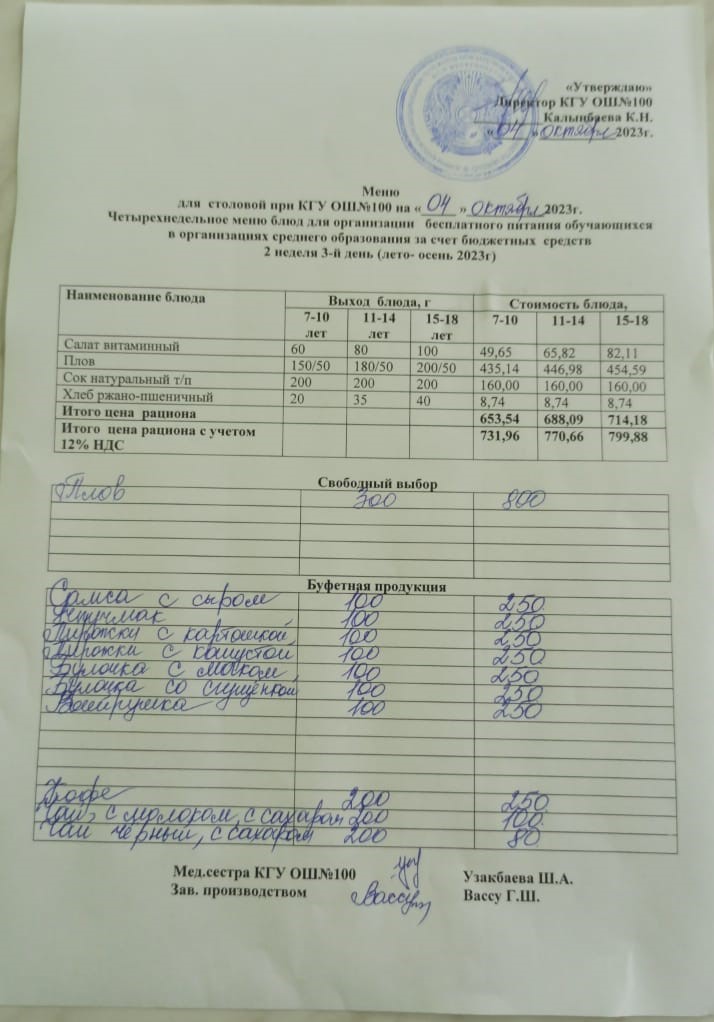 «Утверждаю»
Директор КГУ ОШ№100
Калынбаева К.Н.
«04» октября 2023г.
Меню
для столовой при КГУ ОШ№100 на «04» октября 2023г.
Четырехнедельное меню блюд для организации бесплатного питания обучающихся
в организациях среднего образования за счет бюджетных средств
2 неделя 3-й день (лето- осень 2023г)
Наименование блюда Выход блюда, г Стоимость блюда,
7-10 лет 11-14 лет 15-18 лет 7-10 11-14 15-18
Салат витаминный 60 80 100 49,65 65,82 82,11
Плов 150/50 180/50 200/50 435,14 446,98 454,59
Сок натуральный т/п 200 200 200 160,00 160,00 160,00
Хлеб ржано-пшеничный 20 35 40 8,74 8,74 8,74
Итого цена рациона 653,54 688,09 714,18
Итого цена рациона с учетом 731,96 770,66 799,88
12% НДС
Свободный выбор
Плов 300 800
Буфетная продукция
Самса с сыром 100 250
100 250
Пирожки с картошкой 100 250
Пирожки с капустой 100 250
Булочка с маком 100 250
Булочка со сгущенкой 100 250
Ватрушка 100 250
200 250
Чай с молоком, с сахаром 200 100
Чай черный, с сахаром 200 80
Мед.сестра КГУ ОШ№100 Узакбаева Ш.А.
Зав. производством Вассу Г.Ш.